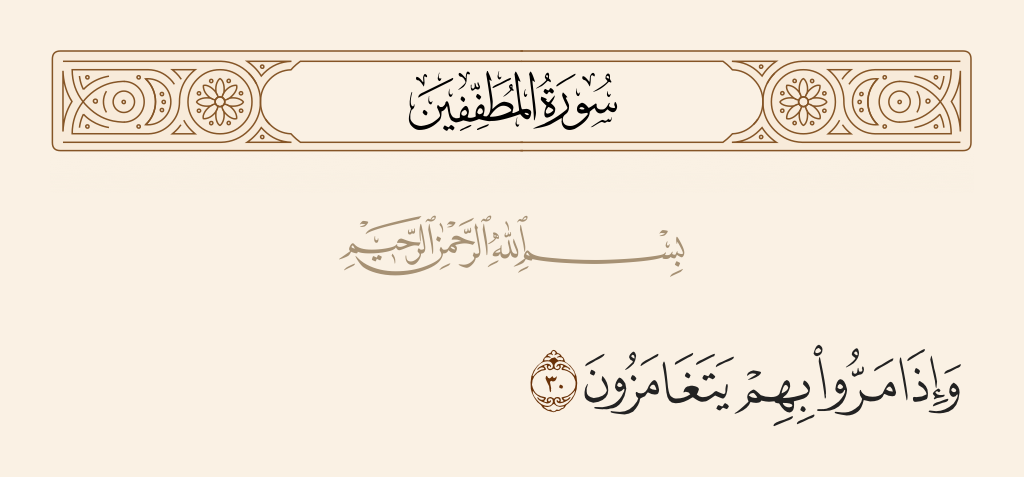 سُورَةُ المُطَفِّفِينَ
بِسْمِ ٱللَّهِ ٱلرَّحْمَٰنِ ٱلرَّحِيمِ
وَإِذَا مَرُّوا۟ بِهِمْ يَتَغَامَزُونَ ٣٠